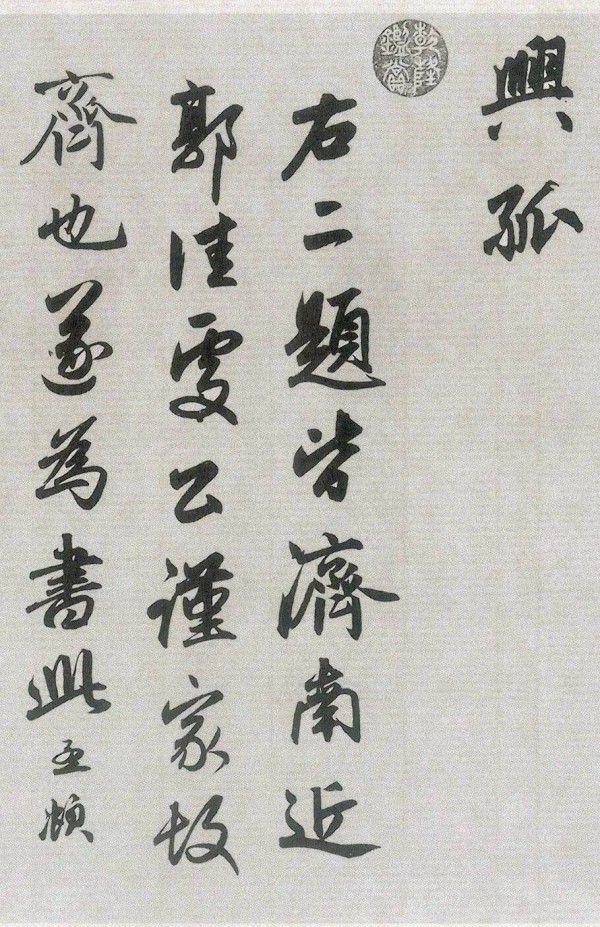 興孤
乾隆
鑑賞
右二題皆濟南近
郭佳處公謹家故
齊也遂為書此孟頫